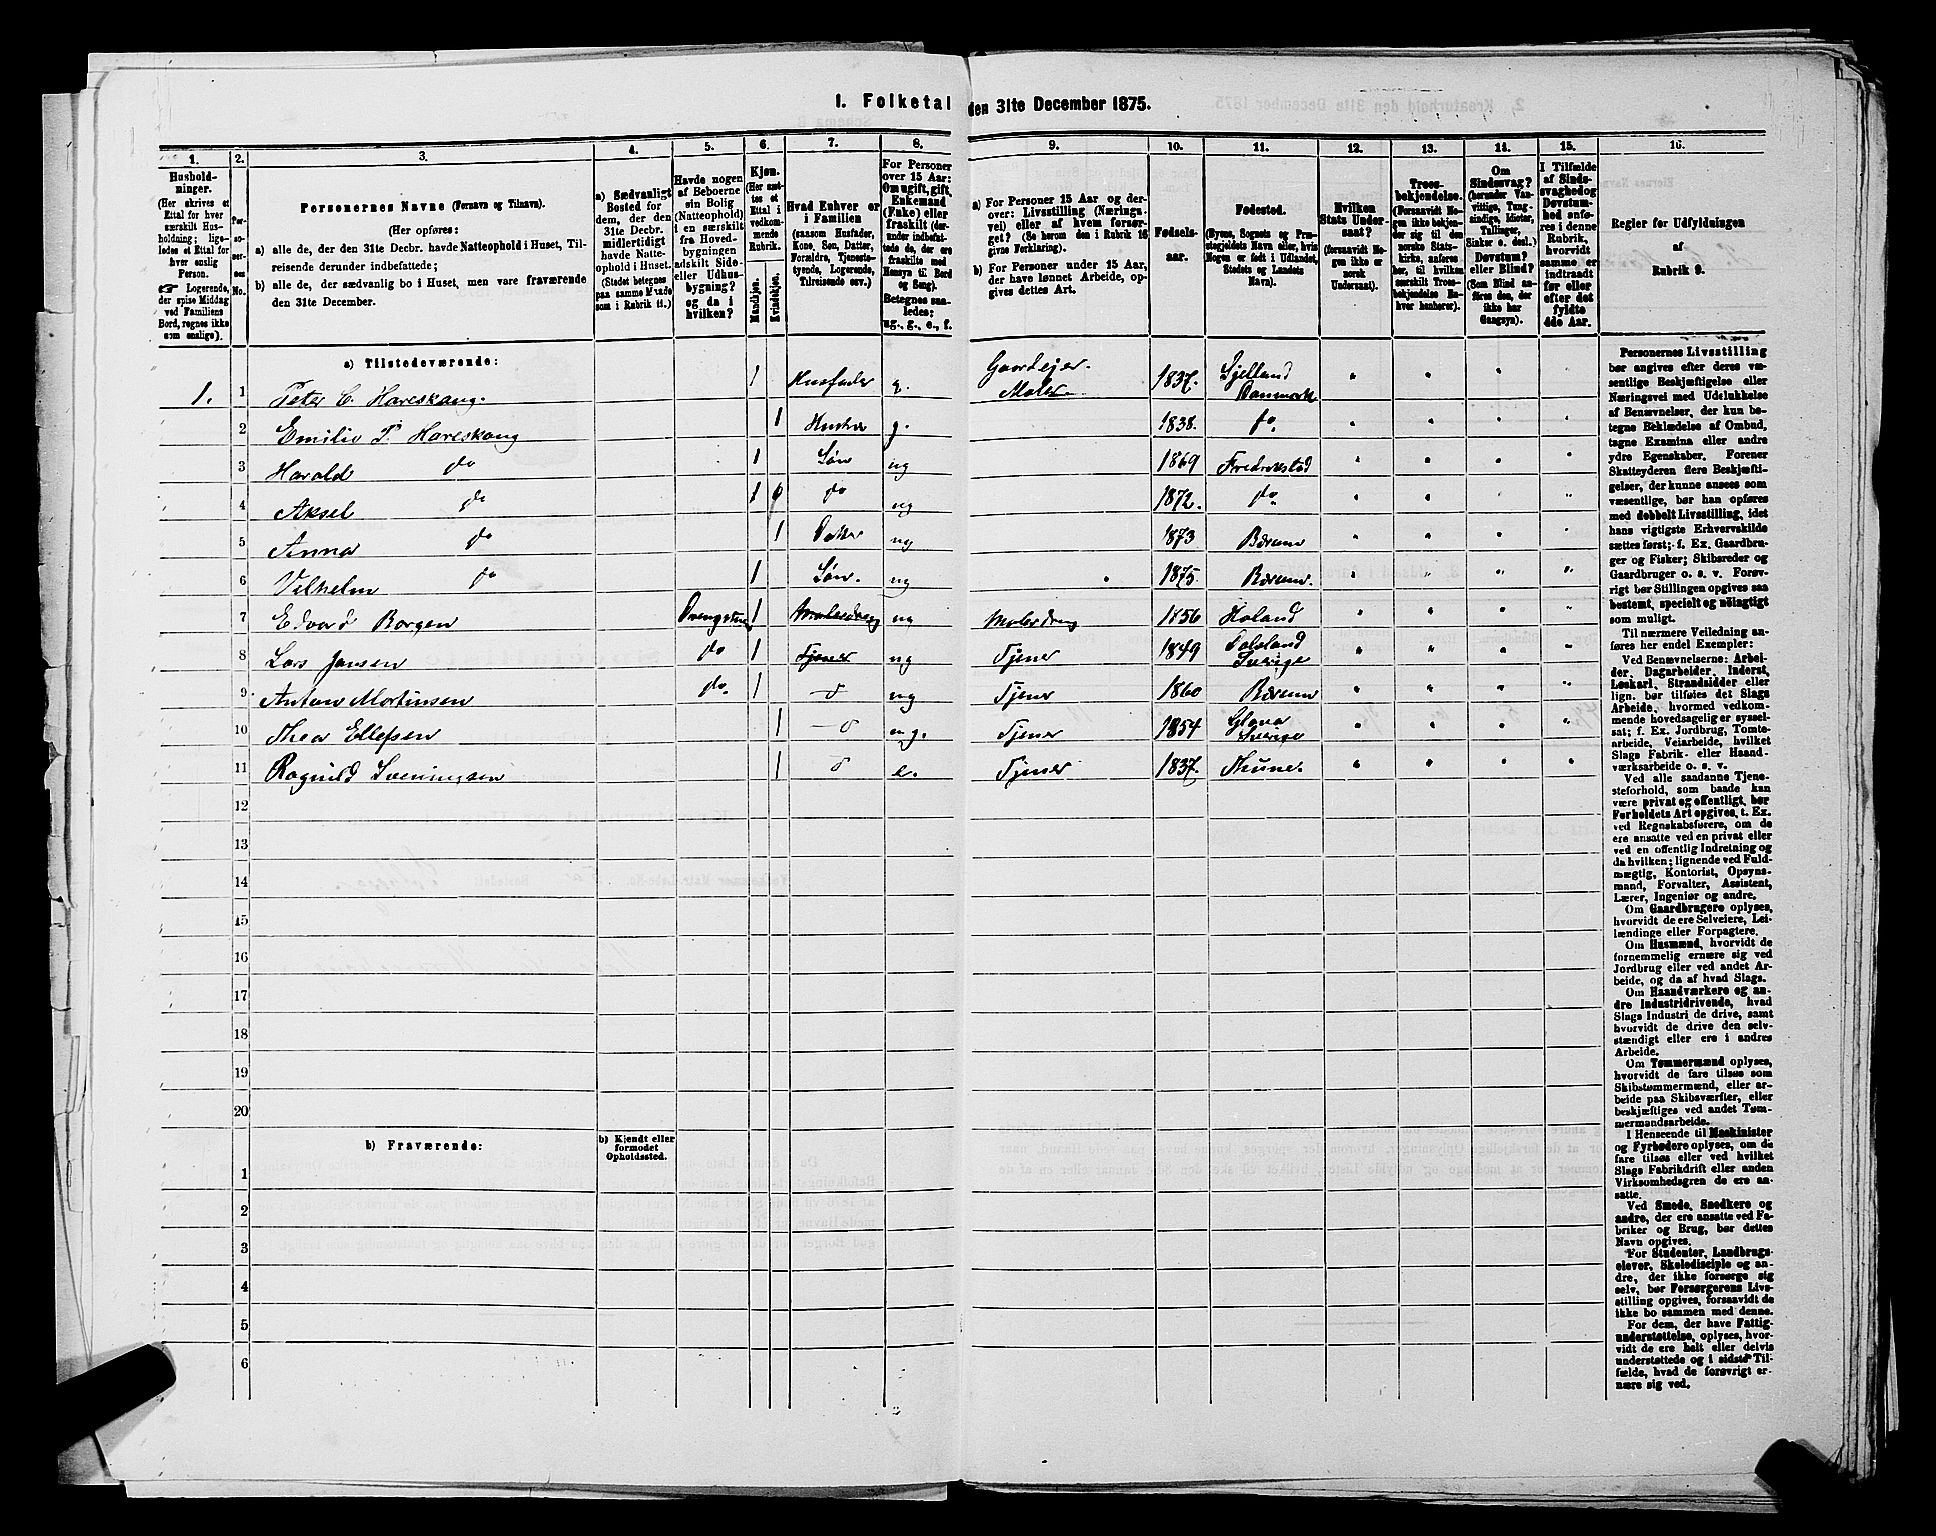 1. Folketal den 31te December 1875.
1. 2. 3. 4. 5. 6. 7. 8. 9. 10. 11. 12. 13. 14. 15. 16.
Husholdninger.
(Her skrives et
Ettal for hver
særskilt Husholdning; ligeledes
et Ettal for
hver enslig
Person.
☞ Logerende,
der spise Middag
ved Familiens
Bord, regnes ikke
som enslige).
Personernes No.
Personernes Navne (Fornavn og Tilnavn).
(Her opføres:
a) alle de, der den 31te Decbr. havde Natteophold i Huset, Tilreisende derunder indbefattede;
b) alle de, der sædvanlig bo i Huset, men vare fraværende
den 31te December.
a) Sædvanligt
Bosted for
dem, der den
31te Decbr.
midlertidigt
havde Natteophold
i Huset.
(Stedet betegnes
paa samme Maade
som i Rubrik 11.)
Havde nogen
af Beboerne
sin Bolig
(Natteophold)
i en særskilt
fra Hovedbygningen
adskilt Side-
eller Udhusbygning?
og da i
hvilken?
Kjøn.
(Her sættes
et
Ettal i
vedkommende
Rubrik.
Mandkjøn.
Kvindekjøn.
Hvad Enhver er
i Familien
(saasom Husfader,
Kone, Søn, Datter,
Forældre, Tjenestetyende,
Logerende,
Tilreisende osv.)
For Personer
over 15 Aar:
Om ugift, gift,
Enkemand
(Enke) eller
fraskilt (derunder
indbefattede
de, der ere
fraskilte med
Hensyn til Bord
og Seng).
Betegnes saaledes:
ug., g., e., f.
a) For Personer 15 Aar og derover:
Livsstilling (Næringsvei)
eller af hvem forsørget?
(Se herom den i Rubrik 16
givne Forklaring).
b) For Personer under 15 Aar,
der have lønnet Arbeide, opgives
dettes Art.
Fødselsaar.
Fødested.
(Byens, Sognets og Præstegjeldets
Navn eller, hvis
Nogen er født i Udlandet,
Stedets og Landets
Navn).
Hvilken
Stats Undersaat?
(forsaavidt Nogen
ikke er
norsk
Undersaat).
Troesbekjendelse.
(Forsaavidt Nogen
ikke bekjender
sig til den
norske Statskirke,
anføres
her, til hvilken
særskilt Troesbekjendelse
Enhver
henhører).
Om
Sindssvag?
(herunder Vanvittige,
Tungsindige,
Idioter,
Tullinger,
Sinker o. desl.)
Døvstum?
eller Blind?
(Som Blind anføres
den, der
ikke har
Gangsyn).
I Tilfælde
af Sindssvaghed og
Døvstumhed
anføres
i denne
Rubrik,
hvorvidt
samme er
indtraadt
før eller
efter det
fyldte
4de Aar.
Regler før Udfyldningen
af
Rubrik 9.
a) Tilstedeværende:
1. 1 Peter C. Hareskoug. 1 Husfader g. Gaardejer. Maler 1837. Sjelland Danmark
2 Emilie P. Hareskoug 1 Hustru g. 1838. do
3 Harald do 1 Søn ug 1869 Fredrikstad
4 Aksel do 1 do ug 1872. do
5 Anna do 1 Datter ug 1873 Bærum
6 Vilhelm do 1 Søn. ug 1875. Bærum.
7 Edvard Borgen 1 ug Malerdreng 1856 Høland
8 Lars Jansen do 1 Tjener ug Tjener 1849 Dalsland Sverige
9 Anton Mortinsen do 1 ug Tjener 1860 Bærum
10 Thea Ellefsen 1 ug. Tjener 1854 Glava Sverige
11 Ragnild Sveningsen 1 e. Tjener 1837.
12
13
14
15
16
17
18
19
20
b) Fraværende:
b) Kjendt eller
formodet
Opholdssted.
1
2
3
4
5
6
Personernes Livsstilling
bør angives efter deres væsentlige
Beskjæftigelse eller
Næringsvei med Udelukkelse
af Benævnelser, der kun betegne
Beklædelse af Ombud,
tagne Examina eller andre
ydre Egenskaber. Forener
Skatteyderen flere Beskjæftigelser,
der kunne ansees som
væsentlige, bør han opføres
med dobbelt Livsstilling, idet
hans vigtigste Erhvervskilde
sættes først; f. Ex. Gaardbruger
og Fisker; Skibsreder og
Gaardbruger o. s. v. Forøvrigt
bør Stillingen opgives saa
bestemt, specielt og nøiagtigt
som muligt.
Til nærmere Veiledning anføres
her endel Exempler:
Ved Benævnelserne: Arbeider,
Dagarbeider, Inderst,
Løskarl, Strandsidder eller
lign. bør tilføies det Slags
Arbeide, hvormed vedkommende
hovedsagelig er sysselsat;
f. Ex. Jordbrug, Tomtearbeide,
Veiarbeide, hvilket
Slags Fabrik- eller Haandværksarbeide
o. s. v.
Ved alle saadanne Tjenesteforhold,
som baade kan
være privat og offentligt, bør
Forholdets Art opgives, t. Ex.
ved Regnskabsførere, om de
ere ansatte ved en privat eller
ved en offentlig Indretning og
da hvilken; lignende ved Fuldmægtig,
Kontorist, Opsynsmand,
Forvalter, Assistent,
Lærer, Ingeniør og andre.
Om Gaardbrugere oplyses,
hvorvidt de ere Selveiere, Leilændinge
eller Forpagtere.
Om Husmænd, hvorvidt de
fornemmelig ernære sig ved
Jordbrug eller ved andet Arbeide,
og da af hvad Slags.
Om Haandværkere og andre
Industridrivende, hvad
Slags Industri de drive, samt
hvorvidt de drive den selvstændigt
eller ere i andres
Arbeide.
Om Tømmermænd oplyses,
hvorvidt de fare tilsøs som
Skibstømmermænd, eller arbeide
paa Skibsværfter, eller
beskjæftiges ved andet Tømmermandsarbeide.
I Henseende til Maskinister
og Fyrbødere oplyses, om de
fare tilsøs eller ved hvilket
Slags Fabrikdrift eller anden
Virksomhedsgren de ere ansatte.
Ved Smede, Snedkere og
andre, der ere ansatte ved Fabriker
og Brug, bør dettes
Navn opgives.
For Studenter, Landbrugselever,
Skoledisciple og andre,
der ikke forsørge sig
selv, bør Forsørgerens Livsstilling
opgives, forsaavidt de
ikke bo sammen med denne.
For dem, der have Fattigunderstøttelse,
oplyses, hvorvidt
de ere helt eller delvis
understøttede og i sidste Tilfælde,
hvad de forøvrigt ernære
sig ved.